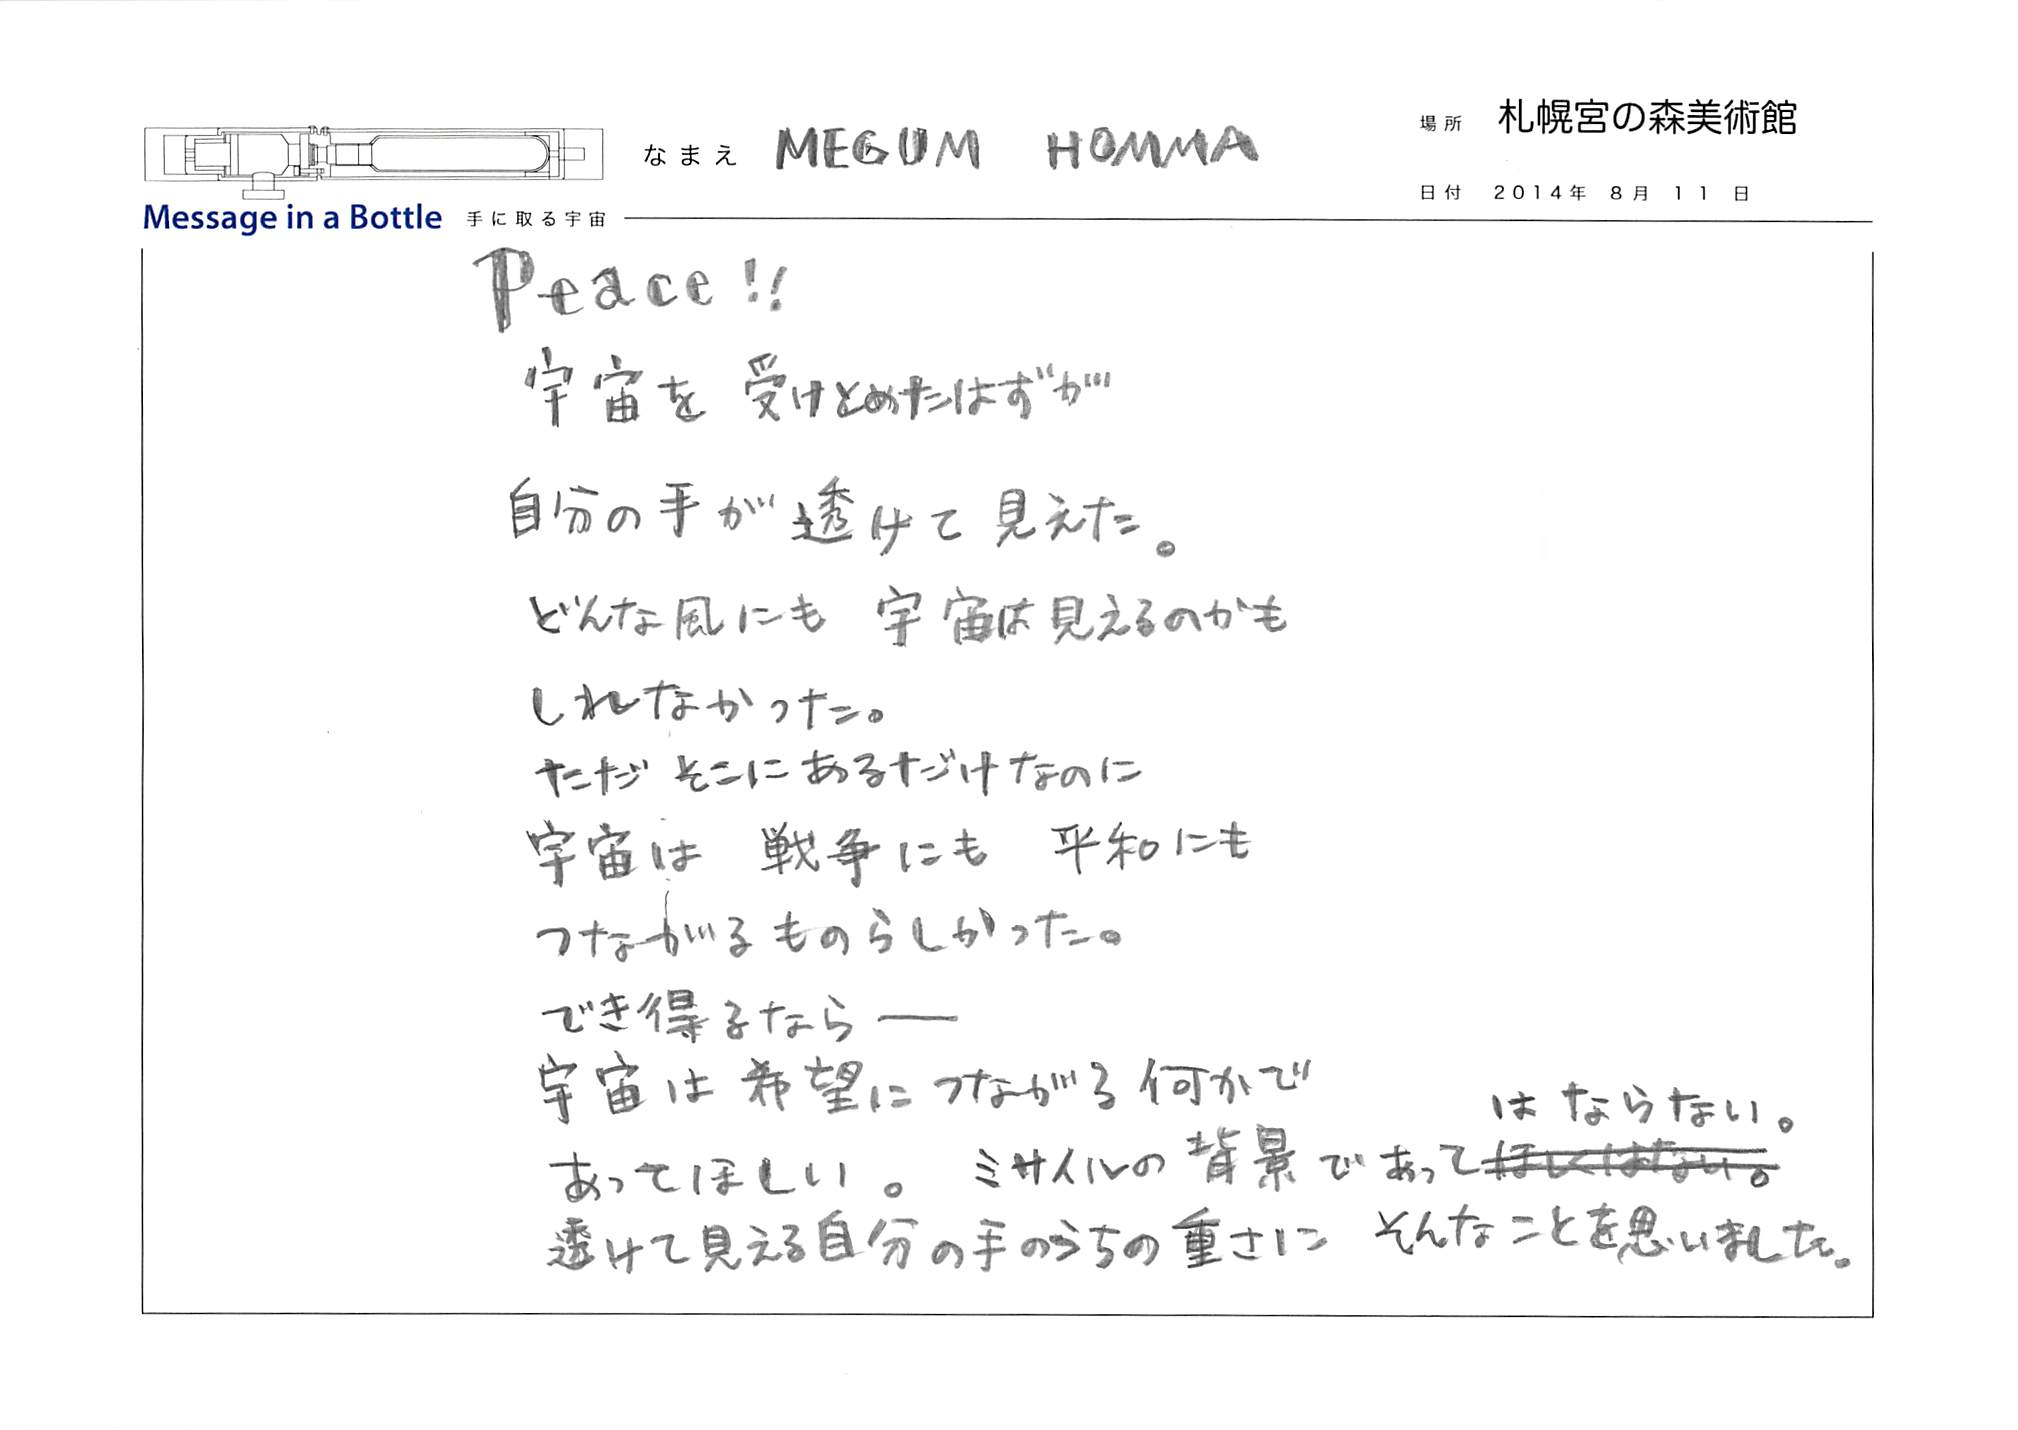 なまえ MEGUM HOMMA
場所 札幌宮の森美術館
日付 2014年 8月 11日
Message in a Bottle 手に取る宇宙
Peace!!
宇宙を 受けとめたはずが
自分の手が透けて見えた。
どんな風にも 宇宙は見えるのかも
しれなかった。
ただ そこにあるだけなのに
宇宙は 戦争にも 平和にも
つながるものらしかった。
でき得るなら――
宇宙は希望につながる何かで
はならない。
あってほしい。 ミサイルの背景であってほしくはない。
透けて見える自分の手のうちの重さに そんなことを思いました。